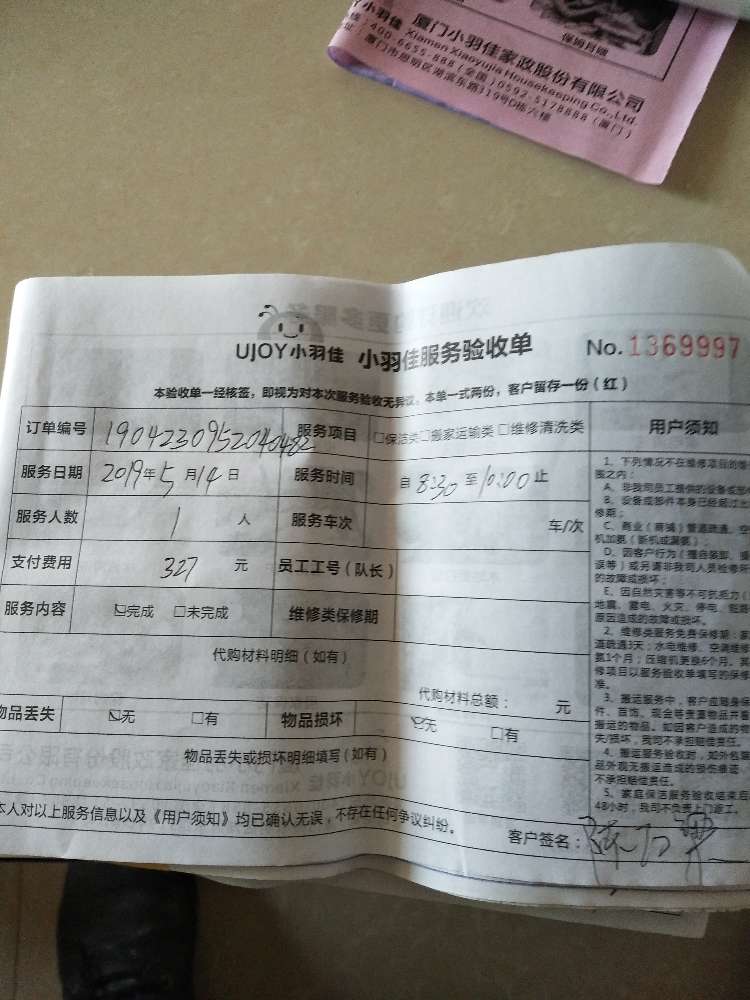 保姆月嫂
小羽佳 厦门小羽佳家政股份有限公司
Xiamen Xiaoyujia Housekeeping Co.,Ltd.
:400-6655-888(全国)0592-5178888(厦门)
址:厦门市思明区湖滨东路319号D栋六楼
UJOY小羽佳 小羽佳服务验收单 No.1369997
本验收单一经核签,即视为对本次服务验收无异议。本单一式两份,客户留存一份(红)
订单编号 1904230952040482 服务项目 □保洁类□搬家运输类 □维修清洗类 用户须知
服务日期 2019年5月14日 服务时间 自 8:30 至 10:00 止
服务人数 1 人 服务车次 车/次
支付费用 327 元 员工工号(队长)
服务内容 ☑完成 □未完成 维修类保修期
代购材料明细(如有)
代购材料总额: 元
物品丢失 ☑无 □有 物品损坏 ☑无 □有
物品丢失或损坏明细填写(如有)
本人对以上服务信息以及《用户须知》均已确认无误,不存在任何争议纠纷。
客户签名:
1、下列情况不在维修项目的维
围之内:
A、非我司员工提供的设备或部
B、设备或部件本身已经超过
修期;
C、商业(商铺)管道疏通、空
机加氨(新机或漏氨);
D、因客户行为(擅自装卸、
误等)或另请非我司人员检修
的故障或损坏;
E、因自然灾害等不可抗力(
地震、雷电、火灾、停电、
原因造成的故障或损坏。
2、维修类服务免费保修期:
道疏通3天;水电维修、空调维
氨1个月;压缩机更换6个月。其
修项目以服务验收单填写的保修
准。
3、搬运服务中,客户应随身保
件、首饰、现金等贵重物品并
搬运的物品。如因客户造成的物
失/损坏,我司不承担赔偿责任。
4、搬运服务验收时,如外包装
品外观无搬运造成的损伤痕迹,
不承担赔偿责任。
5、家庭保洁服务验收结束后
48小时,我司不负责上门返工。